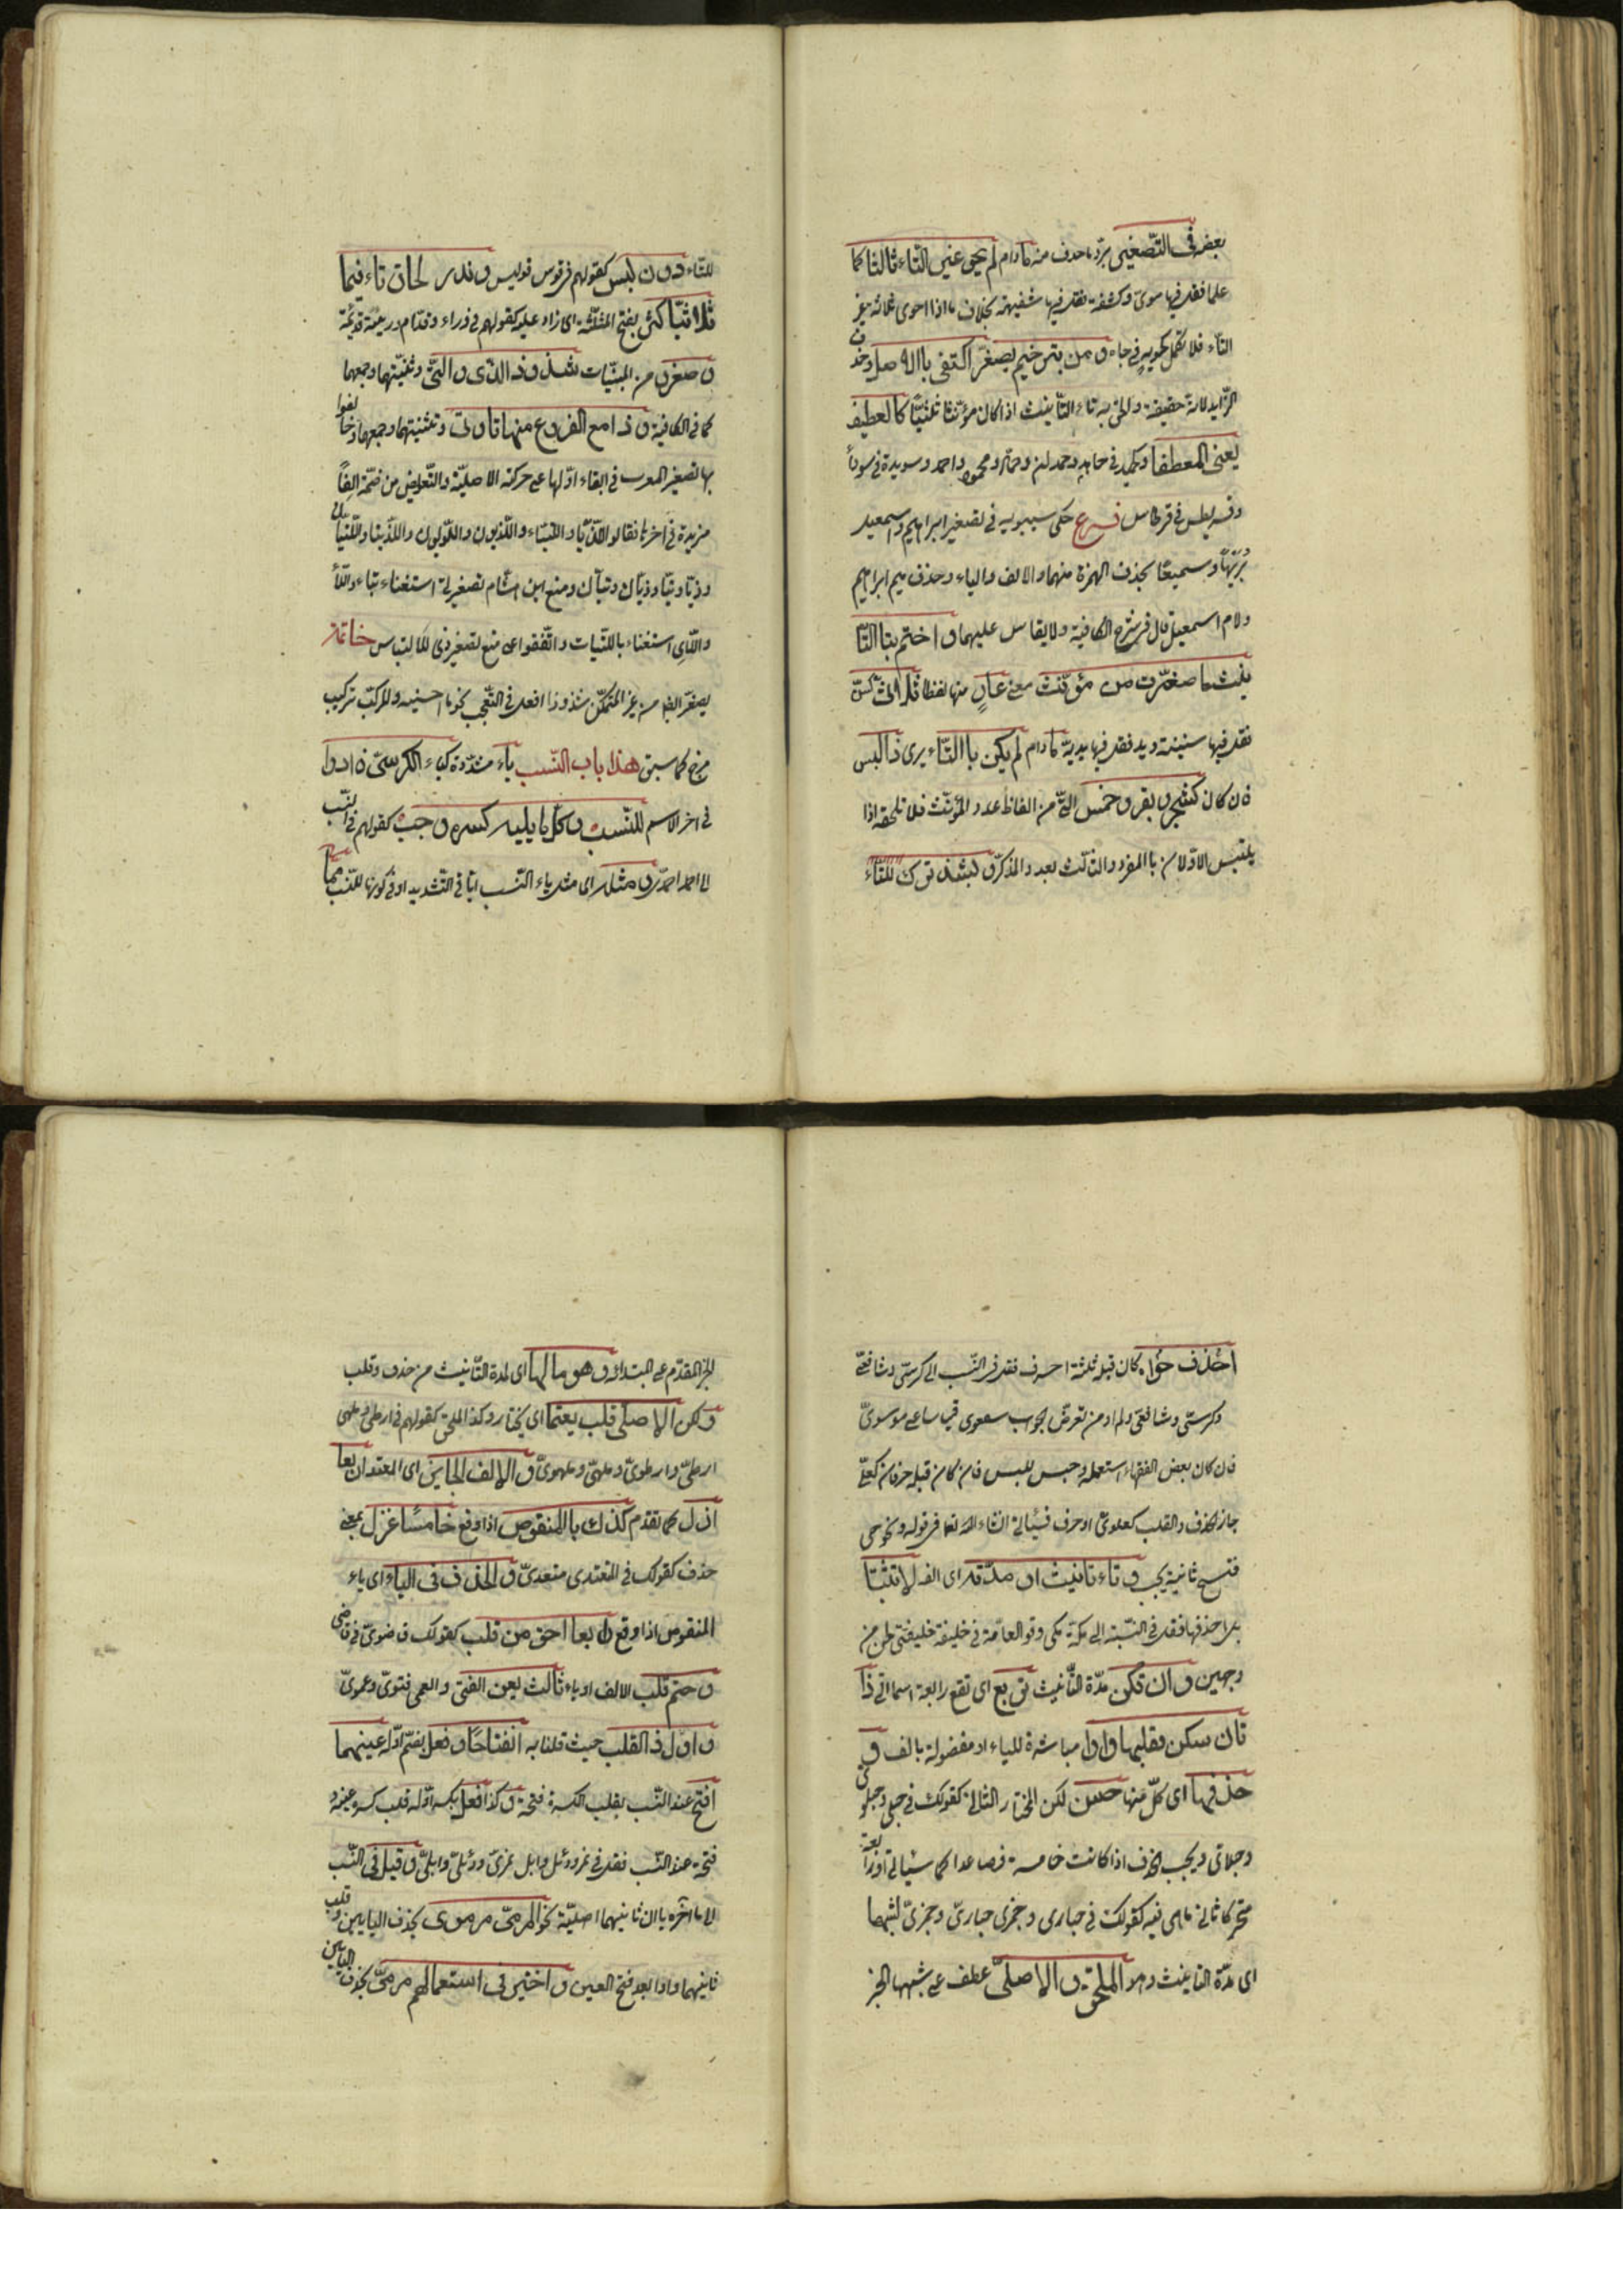 بعض فى التّصغير بردّ ما حذف منه ما دام لم يحو غير التّاء ثالثا كما
علما فقل فيها سوىّ وكشفة فقل فيها شفيهة بخلاف ما اذا حوى ثلاثة غير
التّاء فلا تكمل كجويه فى جاه و من بترخيم يصغّر اكتفى بالاصل وحذف
الزّايد لانه حقيقة والحق به تاء التّأنيث اذا كان مؤنّثا ثلاثيّا كالعطيف
يعنى المعطفا وكحميد فى حامد وحمدان وحمّاد ومحمود واحمد وسويدة فى سوداء
وقريطس فى قرطاس فرع حكى سيبويه فى تصغير ابراهيم واسمعيل
بريها وسميعا بحذف الهمزة منهما والالف والياء وحذف ميم ابراهيم
ولام اسمعيل قال فى شرح الكافية ولا يقاس عليهما و اختم بتا التّا
نيث ما صغّرت من مؤنّث معنى عار منها لفظا ثلاثىّ كسنّ
فقل فيها سنينة ويد فقل فيها يديّة ما دام لم يكن بالتّاء يرى ذا لبس
فان كان كشجر و بقر و خمس الّتى من الفاظ عدد المؤنّث فلا تلحقه اذا
يلتبس الاوّلان بالمفرد والثالث بعدد المذكّر و شذ ترك للتّاء
للتّاء دون لبس كقولهم فى قوس قويس و ندر لحاق تاء فيما
ثلاثيّا كثر بفتح المثلّثة اى زاد عليه كقولهم فى وراء وقدّام وريئة وقديمة
و صغّروا من المبنيّات شذوذا الّذى و الّتى وتثنيتهما وجمعهما
كما فى الكافية و ذا مع الفروع منها تا و تى وتثنيتهما وجمعهما وخالفوا
بها تصغير المعرب فى ابقاء اوّلها على حركته الاصليّة والتّعويض من ضمّه الفاً
مزيدة فى آخرها فقالوا اللّذيّا واللّتيّا واللّذيون واللّويون واللّذيّنا واللّتيّان
وذيّا وتيّا وذيّان وتيّان ومنع ابن هشام تصغير تى استغناء بتا واللّاء
واللّاى استغناء باللّتيات واتّفقوا على منع تصغير ذى للالتباس خاتمة
يصغّر ايضا من غير المتمكّن شذوذا افعل فى التّعجب نحو ما احسينه والمركّب تركيب
مزج كما سبق هذا باب النّسب ياء مشدّدة كياء الكرسىّ زادوا
فى آخر الاسم للنّسب و كلّ ما يليه كسره وجب كقولهم فى النّسب
الى احمد احمدىّ و مثله اى مثل ياء النّسب امّا فى التّشديد او فى كونها للنّسب ممّا
احذف حواه كان قبله ثلثة احرف فقل فى النّسب الى كرسىّ وشافعىّ
وكرسىّ وشافعىّ ولم ار من تعرّض لجواب سعوى قياسا على موسوىّ
فان كان بعض الفقهاء استعمله وحبس للبس فان كان قبله حرفان كعلىّ
جاز الحذف والقلب كعلوىّ او حرف فسيأتى ان شاء الله تعا فى قوله ونحو حى
فتح ثانيه يجب و تاء تأنيث او مدّته اى الفه لا تثبتا
بل احذفها فقل فى النّسبة الى مكّة مكى وقول العامّة فى خليفة خليفتى لحن من
وجهين و ان تكن مدّة التّأنيث تربع اى تقع رابعة اسما اتى ذا
ثان سكن فقلبها واوا مباشرة للياء او مفصولة بالف و
حذفها اى كلّ منهما حسن لكن المختار الثانى كقولك فى حبلى وحبلوى
وحبلاوى ويجب الحذف اذا كانت خامسة فصاعدا كما سيأتى او رابعة
متحركا ثانى ما هى فيه كقولك فى حبارى وجمزى حبارىّ وجمزىّ لشبهها
اى مدّة التانيث وهو الملحق و الاصلىّ عطف على شبهها الخبر
الخبر المقدّم على المبتدا و هو ما لها اى لمدة التّأنيث من حذف وقلب
و لكن الاصلى قلب يعتمى اى يختار وكذا الملحق كقولهم فى ارطى وملهى
ارطىّ وارطوىّ وملهىّ وملهوىّ و الالف الجايز اى المعتد اربعا
ازل كما تقدم كذلك يا المنقوص اذا وقع خامسا عزل بمعنى
حذف كقولك فى المعتدى معتدىّ و الحذف فى الياء اى ياء
المنقوص اذا وقع رابعا احق من قلب كقولك قاضوىّ فى قاضى
و حتم قلب الالف او ياء ثالث يعن الفتى والعمى فتوىّ وعموىّ
و اول ذا القلب حيث قلنا به انفتاحا و فعل بضمّ اوّله عينهما
افتح عند النّسب بقلب الكسرة فتحة و كذا فعل بكسر اوّله قلب كسر عينه و
فتحة عند النّسب فقل فى نمر ودئل وابل نمرىّ ودئلىّ وابلىّ و قيل فى النّسب
الى ما آخره ياان ثانيهما اصليّة نحو المرمىّ مرموى بحذف اليا الاولى وقلب
ثانيهما واوا بعد فتح العين و اختير فى استعمالهم مرمىّ بحذف اليائين